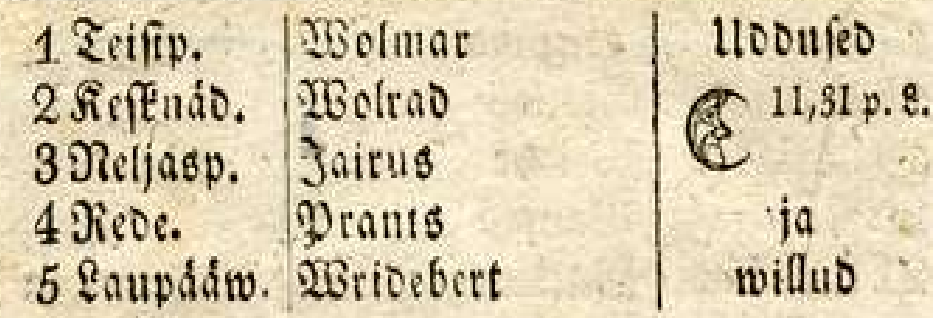 1 Teisip. Wolmar Uddused
2 Kesknäd. Wolrad 11,31 p. L.
3 Neljasp. Jairus
4 Rede. Prants ja
5 Laupääw. Wridebert willud